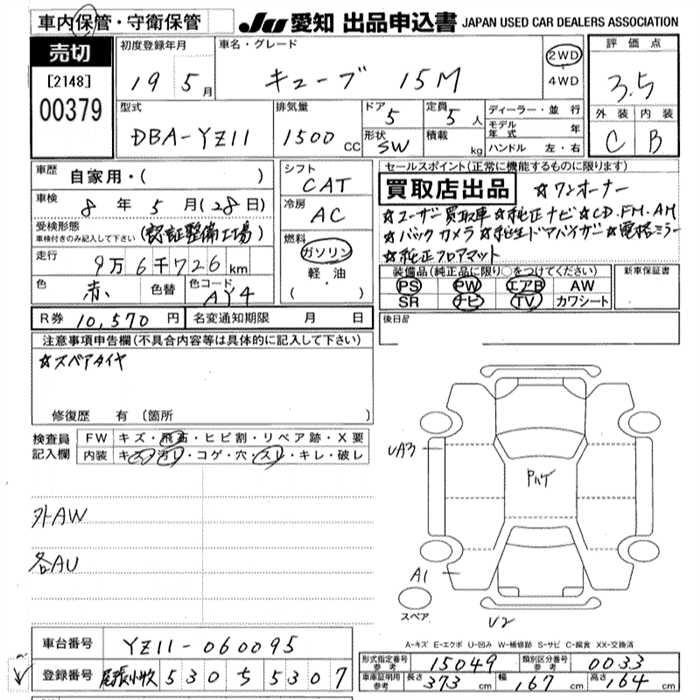 車内保管・守衛保管 JU 愛知 出品申込書 JAPAN USED CAR DEALERS ASSOCIATION
売切
[2148]
00379
初度登録年月 車名・グレード 評価点
19 5月 キューブ 15M 2WD 4WD 3.5
外装 内装
C B
型式 排気量 ドア 定員 ディーラー・並行
DBA-YZ11 1500CC 5 5人 モデル年式 年
形状 SW 積載 kg ハンドル 左・右
車歴 自家用・( )
車検 8年5月(28日)
受検形態
車検付きのみ記入して下さい (認証整備工場)
走行 9万6千726km
色 赤 色替 色コード AY4
シフト CAT
冷房 AC
燃料
ガソリン
軽油
( ・ )
セールスポイント(正常に機能するものに限ります)
買取店出品 ☆ワンオーナー
☆ユーザー買取車☆純正ナビ☆CD.FM.AM
☆バックカメラ☆純正ドアバイザー☆電格ミラー
☆純正フロアマット
装備品(純正品に限り○をつけてください) 新車保証書
PS PW エアB AW
SR ナビ TV カワシート
R券 10,570円 名変通知期限 月 日
後日品
注意事項申告欄(不具合内容等は具体的に記入して下さい)
☆スペアタイヤ
修復歴 有 (箇所 )
検査員記入欄 FW キズ・飛石・ヒビ割・リペア跡・X要
内装 キズ・汚レ・コゲ・穴・スレ・キレ・破レ
外AW
各AU
UA3
A1
U2
スペア
A-キズ E-エクボ U-凹み W-補修跡 S-サビ C-腐食 XX-交換済
車台番号 YZ11-060095
登録番号 尾張小牧 530 ち 5307
形式指定番号 参考 15049 類別区分番号 参考 0033
車庫証明用 参考 長さ 373cm 幅 167cm 高さ 164cm